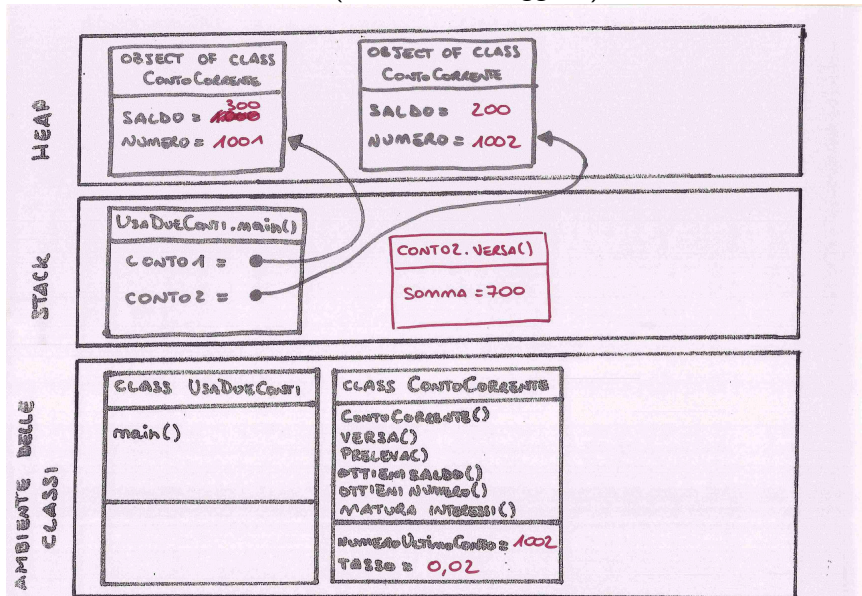 HEAP
OBJECT OF CLASS
ContoCorrente
300
SALDO = 1000
NUMERO = 1001
OBJECT OF CLASS
ContoCorrente
SALDO = 200
NUMERO = 1002
STACK
UsaDueConti.main()
CONTO1 =
CONTO2 =
CONTO2.VERSA()
SOMMA = 700
AMBIENTE DELLE
CLASSI
CLASS UsaDueConti
main()
CLASS ContoCorrente
ContoCorrente()
VERSA()
PRELEVA()
OTTIENI SALDO()
OTTIENI NUMERO()
MATURA INTERESSI()
NUMEROULTIMOCONTO = 1002
TASSO = 0,02